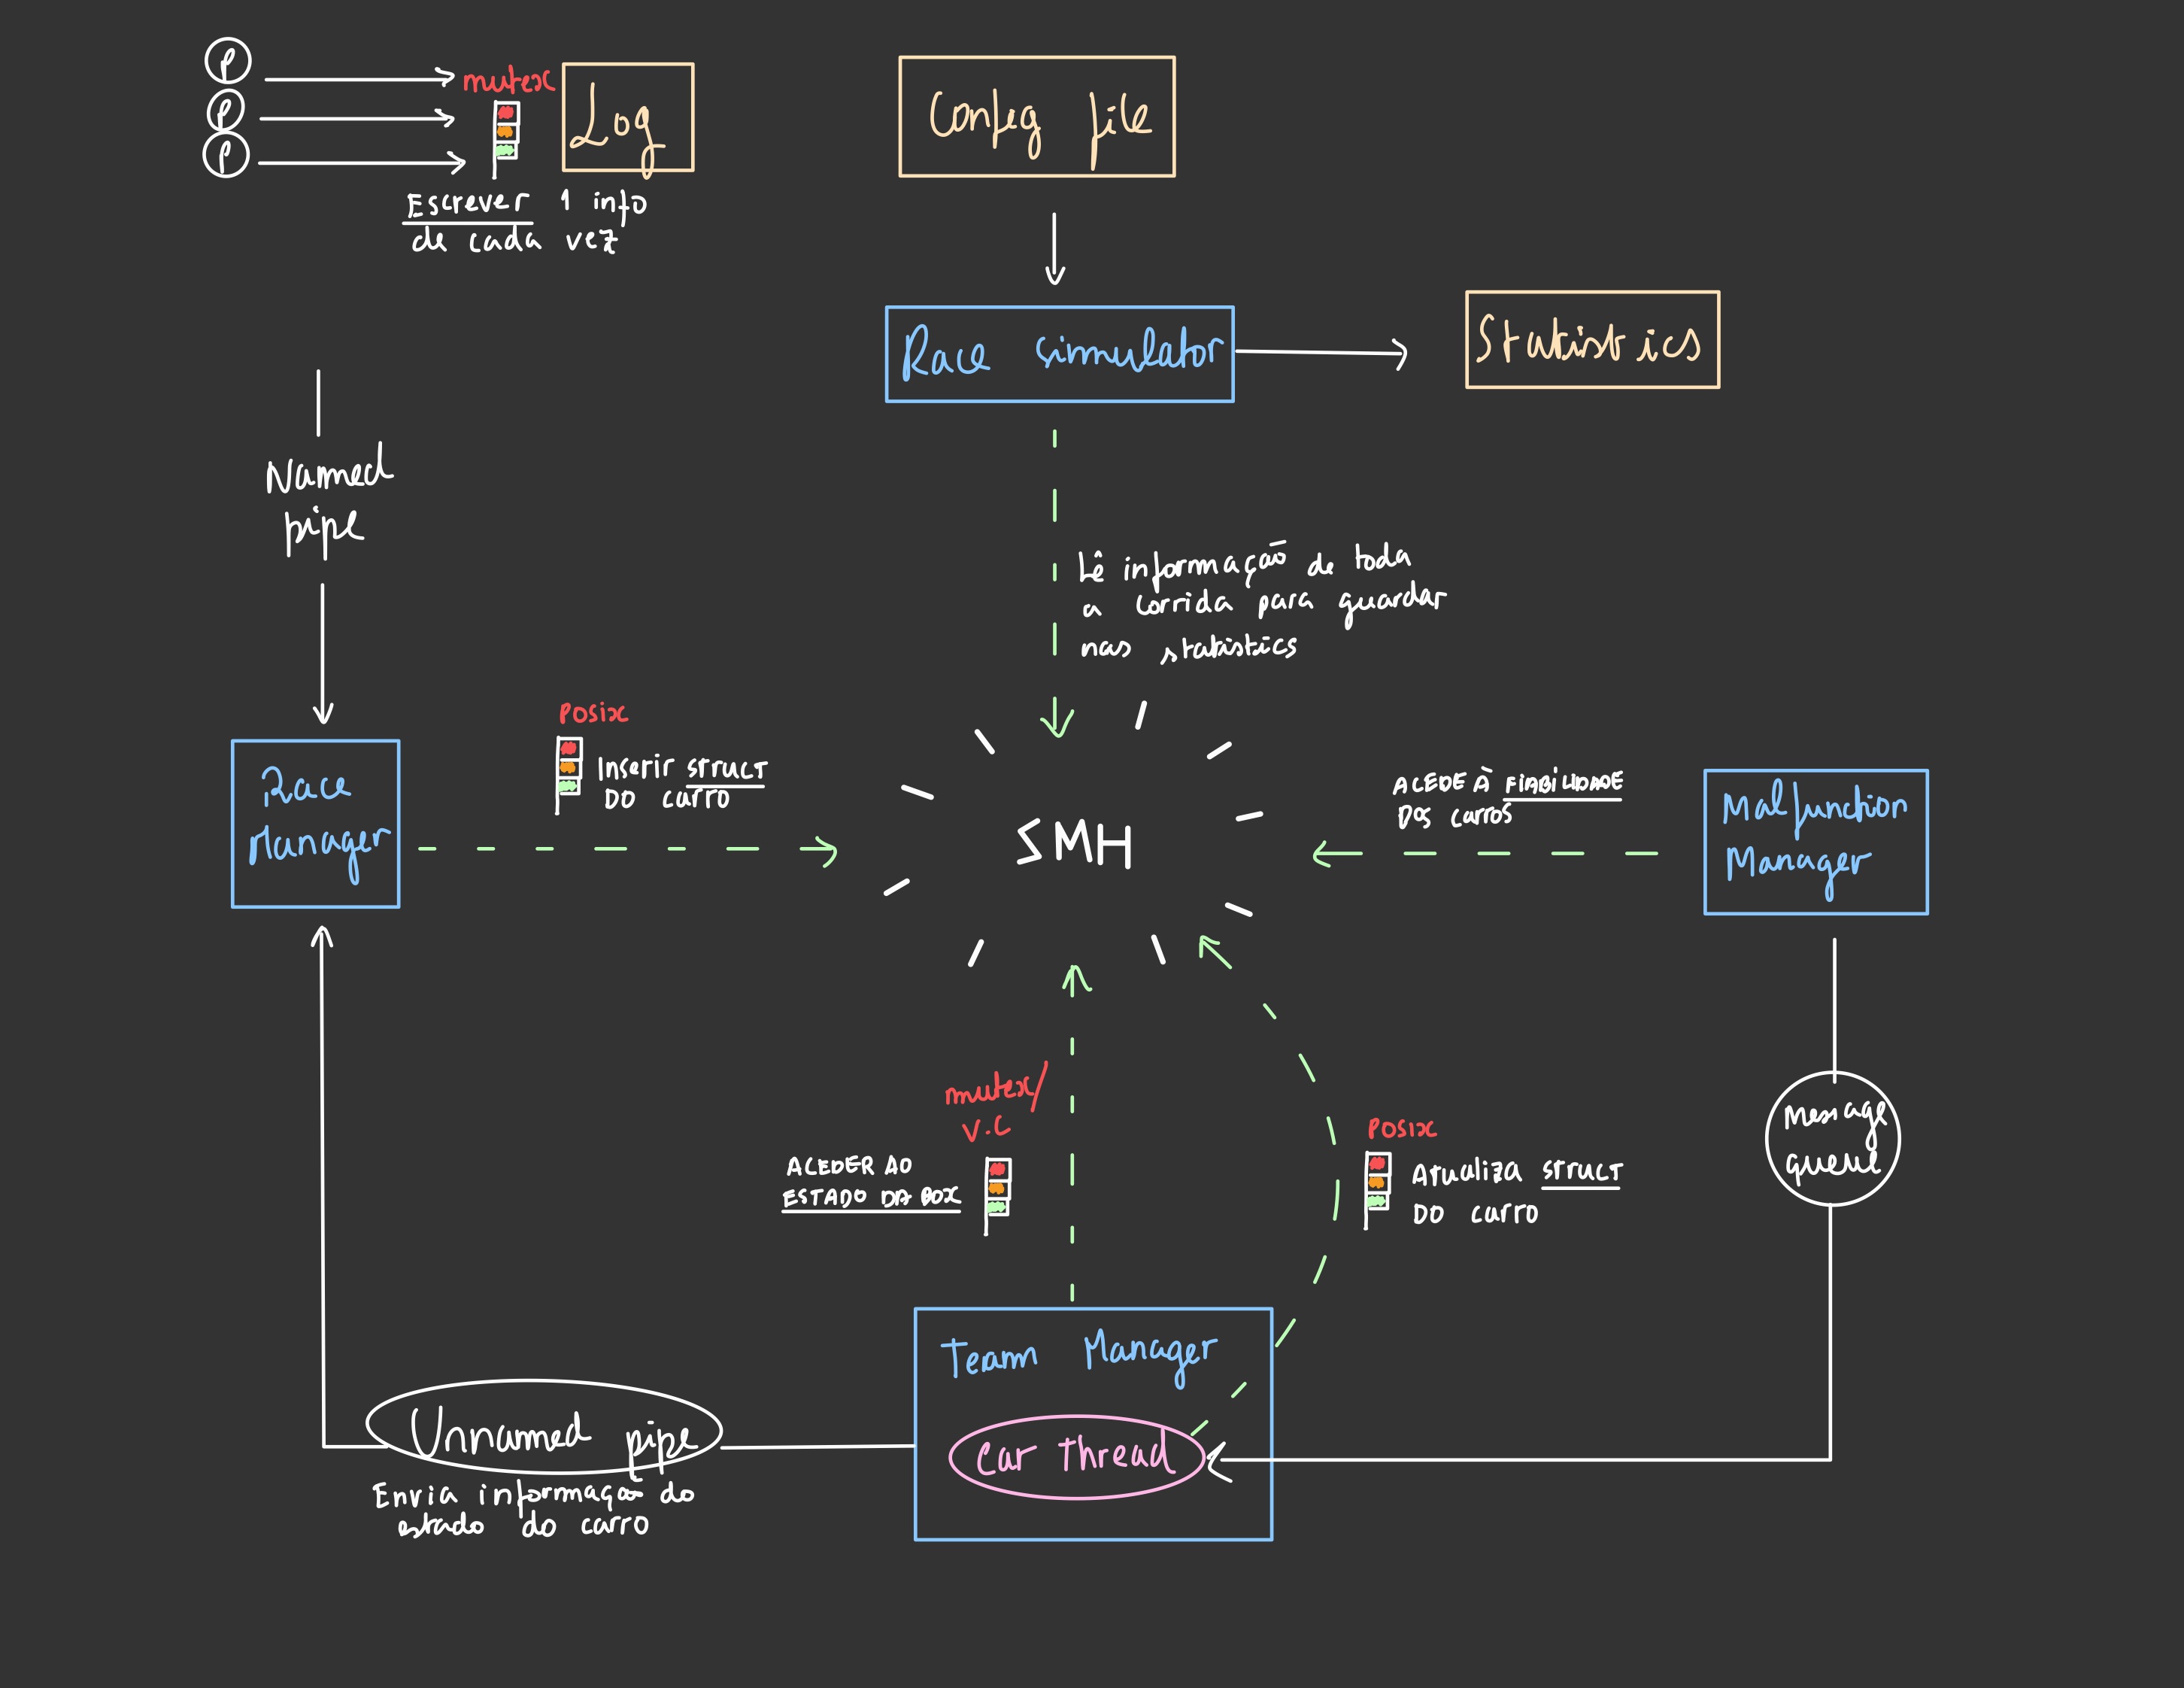 P
P
P
mutex
Log
Escrever 1 info
de cada vez
Config file
Race simulator
Statistics
Named
pipe
Lê informação de toda
a corrida para guardar
nas statistics
Posix
Inserir struct
do carro
Race
Manager
SMH
ACEDE À FIABILIDADE
DOS CARROS
Malfunction
Manager
mutex/
V.C
ACEDER AO
ESTADO DA BOX
Posix
Atualiza struct
do carro
Message
queue
Team Manager
Car thread
Unnamed pipe
Envia informação do
estado do carro